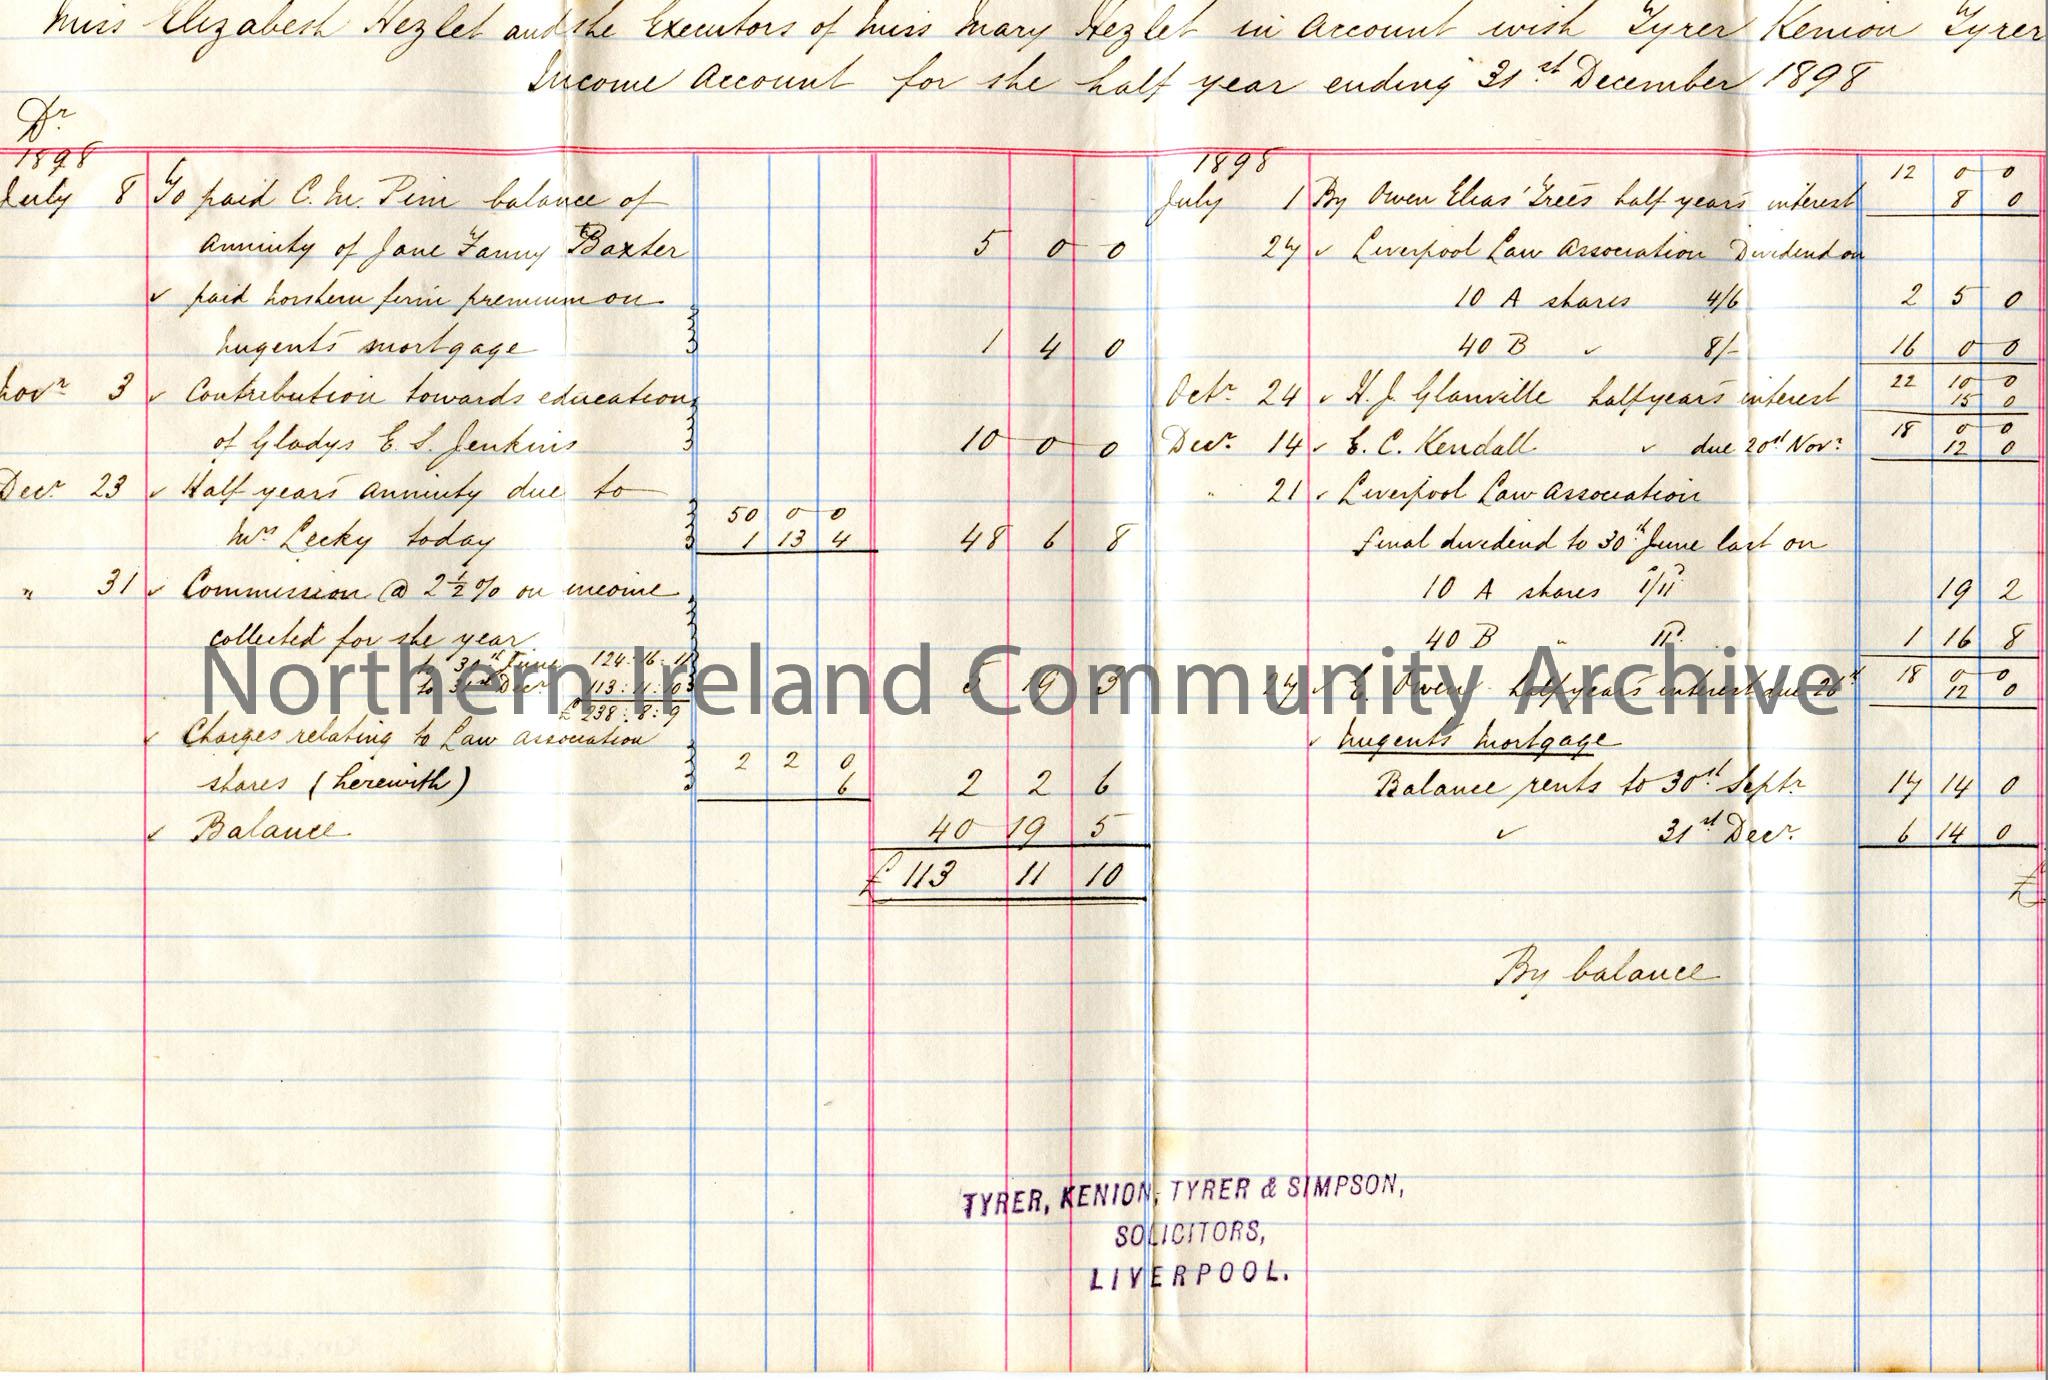 Miss Elizabeth Hezlet and the Executors of Miss Mary Hezlet in Account with Tyrer Kenion Tyrer
Income Account for the half year ending 31st December 1898
Dr
1898
July 8 To paid C. M. Pim balance of
annuity of Jane Fanny Baxter 5 0 0
" paid Northern firm premium on
Nugent's mortgage 1 4 0
Novr 3 " Contribution towards education
of Gladys E. S. Jenkins 10 0 0
Decr 23 " Half years annuity due to
50 0 0
Mrs Lecky today 1 13 4 48 6 8
" 31 " Commission @ 2½% on income
collected for the year
to 30th June 124:16:11
to 31st Decr 113:11:10 5 19 3
£ 238:8:9
" Charges relating to Law Association
2 2 0
shares (herewith) 6 2 2 6
" Balance 40 19 5
£ 113 11 10
1898
12 0 0
July 1 By Owen Elias' Trees half years interest 8 0
27 " Liverpool Law Association Dividend on
10 A shares 4/6 2 5 0
40 B " 8/- 16 0 0
22 10 0
Octr 24 " H. J. Glanville half years interest 15 0
18 0 0
Decr 14 " E. C. Kendall " due 20th Novr 12 0
" 21 " Liverpool Law Association
final dividend to 30th June last on
10 A shares 1/11d 19 2
40 B " 11d 1 16 8
18 0 0
27 " E. Owen half years interest due 26th 12 0
" Nugents Mortgage
Balance rents to 30th Septr 17 14 0
" 31st Decr 6 14 0
£
By balance
Northern Ireland Community Archive
TYRER, KENION, TYRER & SIMPSON,
SOLICITORS,
LIVERPOOL.